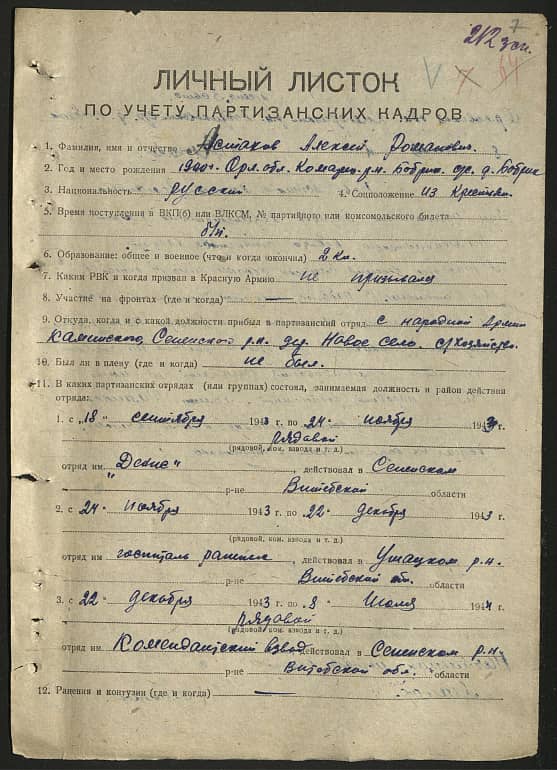 7
212 зап.
V 7 64
ЛИЧНЫЙ ЛИСТОК
ПО УЧЕТУ ПАРТИЗАНСКИХ КАДРОВ
1. Фамилия, имя и отчество Астахов Алексей Романович
2. Год и место рождения 1900 г. Орл. обл. Комарич. р-н Бобрик. с/с д. Бобрик
3. Национальность русский 4. Соцположение из крестьян
5. Время поступления в ВКП(б) или ВЛКСМ, № партийного или комсомольского билета
б/п.
6. Образование: общее и военное (что и когда окончил) 2 кл.
7. Каким РВК и когда призван в Красную Армию не призывался
8. Участие на фронтах (где и когда) —
9. Откуда, когда и с какой должности прибыл в партизанский отряд с народной армии
Каминского, Сененского р-н. дер. Новое село. с/хозяйство
10. Был ли в плену (где и когда) не был.
11. В каких партизанских отрядах (или группах) состоял, занимаемая должность и район действия
отряда:
1. с „18" сентября 1943 г. по 24 ноября 1943 г.
рядовой
(рядовой, ком. взвода и т. д.)
отряд им. , действовал в Сененском
р-не Витебской области
2. с 24 ноября 1943 г. по 22 декабря 1943 г.
(рядовой, ком. взвода и т. д.)
отряд им госпиталь , действовал в Ушацком р-н.
р-не Витебский обл. области
3. с 22 декабря 1943 г. по 8 июля 1944 г.
рядовой
(рядовой, ком. взвода и т. д.)
отряд им Комендантский взвод действовал в Сененском р-н
р-не Витебской обл. области
12. Ранения и контузии (где и когда) —